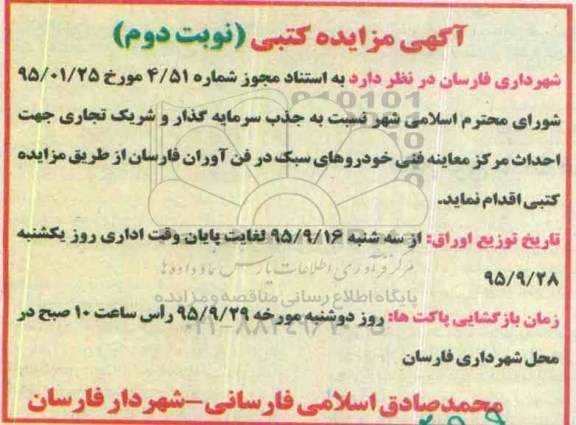 آگهی مزایده کتبی (نوبت دوم)
شهرداری فارسان در نظر دارد به استناد مجوز شماره ۴/۵۱ مورخ ۹۵/۰۱/۲۵
شورای محترم اسلامی شهر نسبت به جذب سرمایه گذار و شریک تجاری جهت
احداث مرکز معاینه فنی خودروهای سبک در فن آوران فارسان از طریق مزایده
کتبی اقدام نماید.
تاریخ توزیع اوراق: از سه شنبه ۹۵/۹/۱۶ لغایت پایان وقت اداری روز یکشنبه
۹۵/۹/۲۸
پایگاه اطلاع رسانی مناقصه و مزایده
زمان بازگشایی پاکت ها: روز دوشنبه مورخه ۹۵/۹/۲۹ رأس ساعت ۱۰ صبح در
محل شهرداری فارسان
محمدصادق اسلامی فارسانی-شهردار فارسان